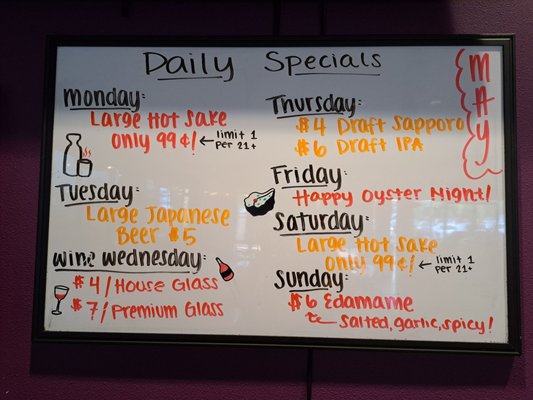 Daily Specials
MAY
Monday:
Large Hot Sake
only 99¢!
← limit 1
per 21+
Tuesday:
Large Japanese
Beer $5
Wine Wednesday:
$4/House Glass
$7/Premium Glass
Thursday:
$4 Draft Sapporo
$6 Draft IPA
Friday:
Happy Oyster Night!
Saturday:
Large Hot Sake
only 99¢!
← limit 1
per 21+
Sunday:
$6 Edamame
Salted, garlic, spicy!